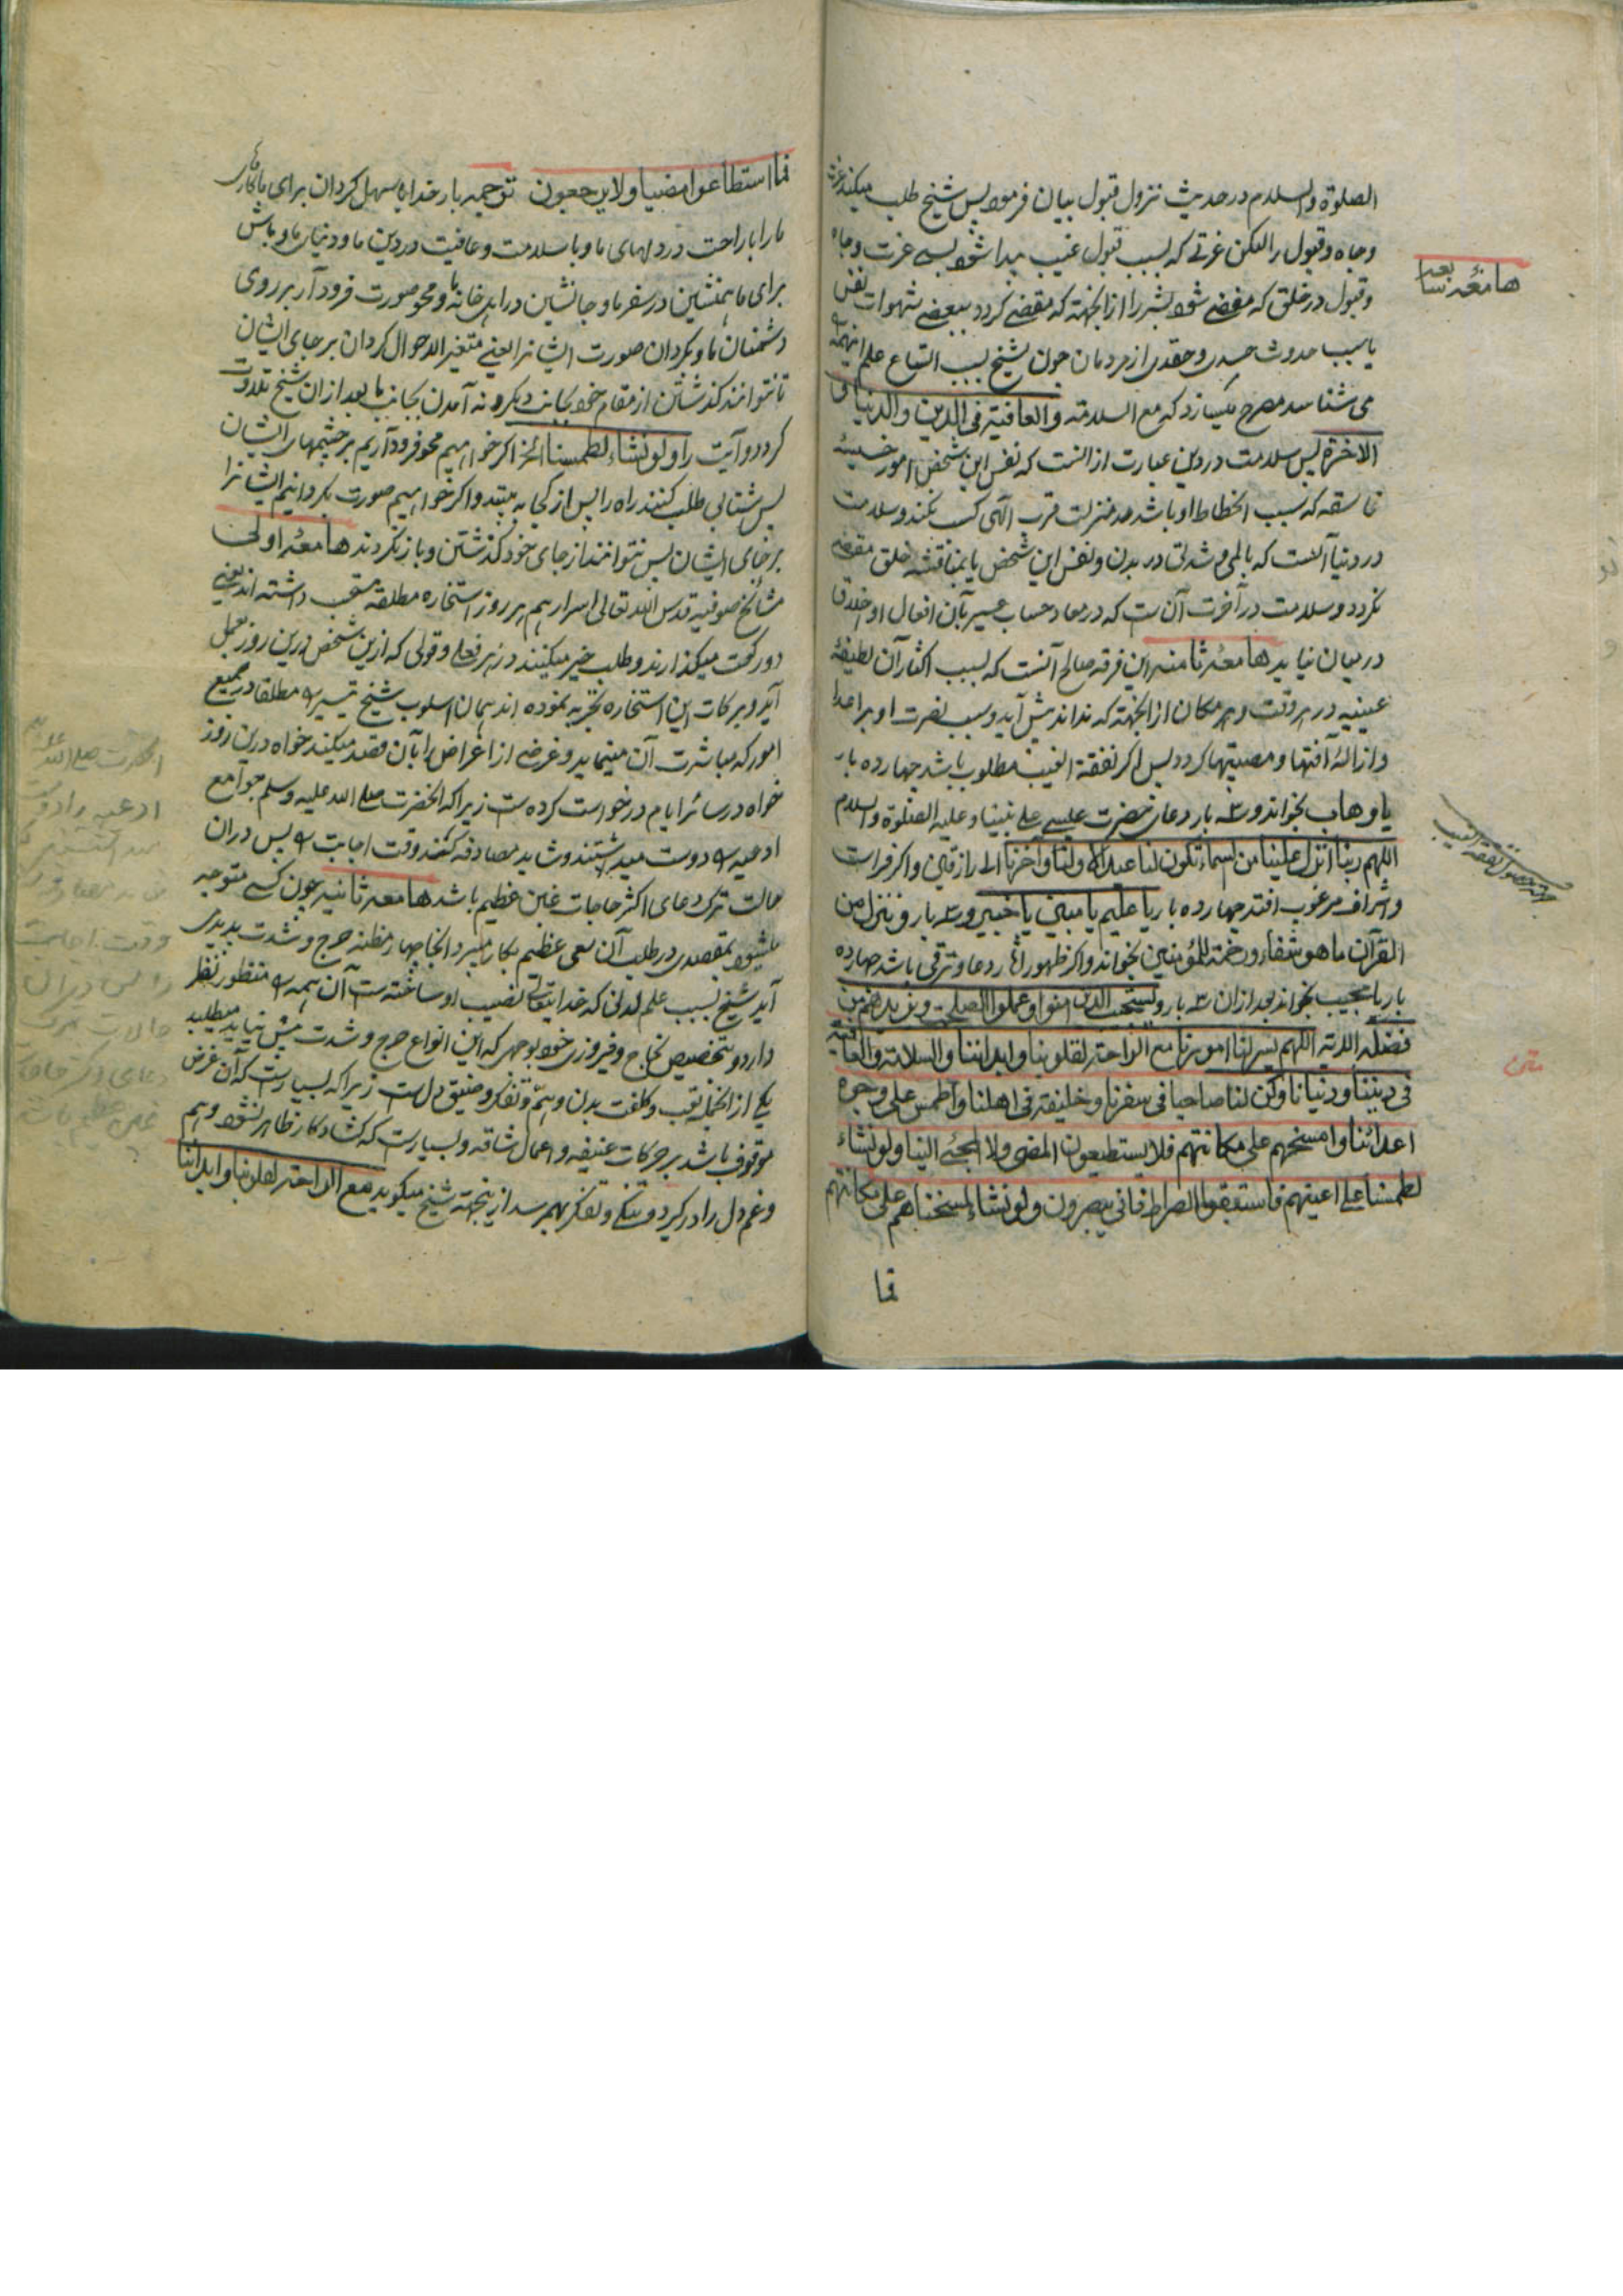 الصلوة والسلام در حدیث نزول قبول بیان فرموده پس شیخ طلب میکند عزت
وجاه وقبول را لیکن عزتی که بسبب قبول غیب پیدا شود بی عزت وجاه
وقبول در خلق که مفضی شود بشر را از آنجهة که مفضی کردد ببعضی شهوات نفس
یا سبب حدوث حسد وحقدی از مردمان چون شیخ بسبب اتساع علم اینهمه
می شناسد مصرح میسازد که مع السلامة والعافیة فی الدین والدنیا و
الاخرة پس سلامت در دین عبارت از آنست که نفس این شخص امور خسیسه
فاسقه که سبب انحطاط او باشد از منزلت قرب الهی کسب نکند وسلامت
در دنیا آنست که بالمی وشدتی در بدن ونفس این شخص یا بمناقشه خلق مفضی
نکردد وسلامت در آخرت آن ست که در معاد حساب عسیر بآن افعال واخلاق
در میان نیاید هامعه ثامنه این فرقه صالح آنست که بسبب اکثار آن لطیفه
غیبیه در هر وقت وهر مکان از آنجهة که نداند پیش آید وسبب نصرت او بر اعدا
وازالهٔ آفتها ومصیبتها کردد پس اگر نفقة الغیب مطلوب باشد چهارده بار
یا وهاب بخواند و سه بار دعای حضرت عیسی علی نبینا وعلیه الصلوة والسلام
اللهم ربنا انزل علینا من السماء تکون لنا عیدا لاولنا وآخرنا الی رازقین واگر فراست
واشراف مرغوب افتد چهارده بار یا علیم یا مبین یا خبیر و سه بار وننزل من
القرآن ما هو شفاء ورحمة للمؤمنین بخواند واگر ظهور اثار دعا وترقی باشد چهارده
بار یا مجیب بخواند بعد ازان سه بار ویستجیب الذین امنوا وعملوا الصلحت ویزیدهم من
فضله الایة اللهم یسر لنا امورنا مع الراحة لقلوبنا وابداننا والسلامة والعافیة
فی دیننا ودنیانا وکن لنا صاحبا فی سفرنا وخلیفة فی اهلنا واطمس علی وجوه
اعدائنا وامسخهم علی مکانتهم فلا یستطیعون المضی ولا المجئ الینا ولو نشاء
لطمسنا علی اعینهم فاستبقوا الصراط فانی یبصرون ولو نشاء لمسخناهم علی مکانتهم
فما
هامعهٔ سابعه
متن
فما استطاعوا مضیا ولا یرجعون ترجمه بار خدایا سهل کردان برای ما کارهای
ما را با راحت در دلهای ما وبا سلامت وعافیت در دین ما ودنیای ما وباش
برای ما همنشین در سفر ما وجانشین در اهل خانه ما ومحو صورت فرود آر بر روی
دشمنان ما وبکردان صورت ایشانرا یعنی متغیر الاحوال کردان بر جای ایشان
تا نتوانند کذشتن از مقام خود بجانب دیگر ونه آمدن بجانب ما بعد ازان شیخ تلاوت
کرد دو آیت را ولو نشاء لطمسنا الخ اگر خواهیم محو فرود آریم بر چشمهای ایشان
پس شتابی طلب کنند راه را پس از کجا به بینند واگر خواهیم صورت بکردانیم ایشانرا
بر جای ایشان پس نتوانند از جای خود کذشتن وباز نکردند هامعهٔ اولی
مشائخ صوفیه قدس الله تعالی اسرارهم هر روز استخاره مطلقه مستحب داشته اند یعنی
دو رکعت میکذارند وطلب خیر میکنند در هر فعلی وقولی که ازین شخص درین روز بعمل
آید وبرکات این استخاره تجربه نموده اند بهمان اسلوب شیخ تیسیر را مطلقا در جمیع
امور که مباشرت آن مینماید وغرضی از اعراض را بآن قصد میکند خواه درین روز
خواه در سائر ایام درخواست کرده ست زیرا که آنحضرت صلی الله علیه وسلم جوامع
ادعیه را دوست میداشتند وشاید مصادفه کنند وقت اجابت را پس دران
حالت ترک دعای اکثر حاجات غبن عظیم باشد هامعه ثانیه چون کسی متوجه
میشود بمقصدی در طلب آن سعی عظیم بکار میبرد انجا چهار مظنه حرج وشدت پدید
آید شیخ بسبب علم لدنی که خدایتعالی نصیب او ساخته ست آن همه را منظور نظر
دارد وتخصیص نجاح وفیروزی خود بوجهی که این انواع حرج وشدت پیش نیاید میطلبد
یکی از انجمله تعب وکلفت بدن وهم وتفکر وضیق دل ست زیرا که بسیارست که آن غرض
موقوف باشد بر حرکات عنیفه واعمال شاقه وبسیارست که کشاد کار ظاهر نشود وهم
وغم دل را درگیرد وتنگی وتفکر بهم رسد ازینجهة شیخ میگوید مع الراحة لقلوبنا وابداننا